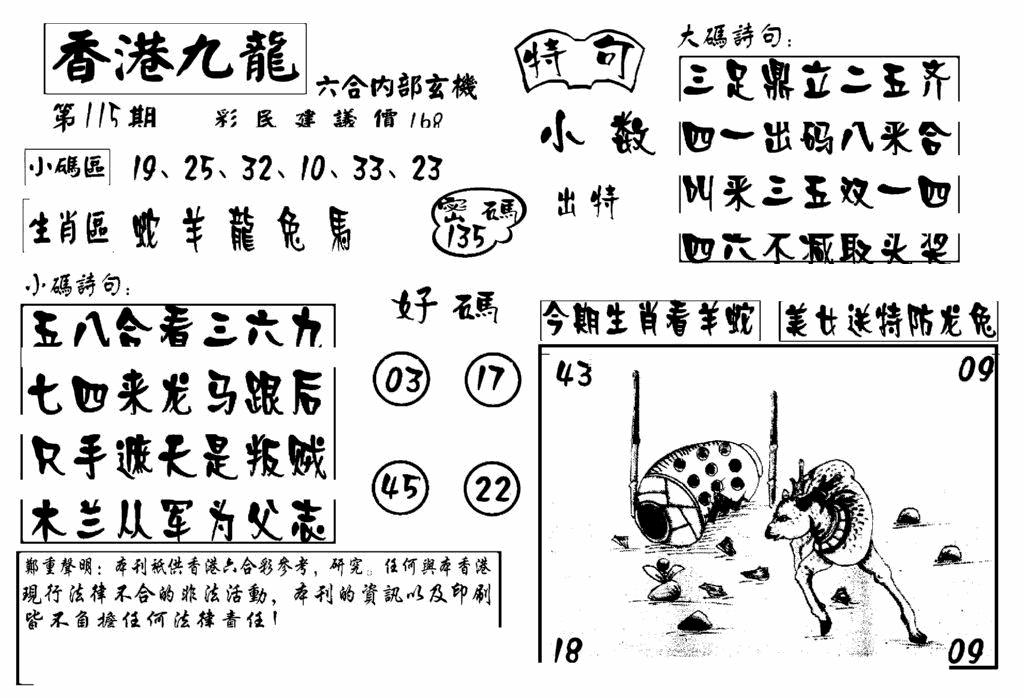 香港九龍
六合内部玄機
第115期
彩民建議價168
小碼區
19、25、32、10、33、23
生肖區
蛇羊龍兔馬
密碼
135
小碼詩句:
五八合看三六九
七四来龙马跟后
只手遮天是叛贼
木兰从军为父志
好碼
03
17
45
22
鄭重聲明:本刊祇供香港六合彩參考,研究。任何與本香港
現行法律不合的非法活動,本刊的資訊以及印刷
皆不負擔任何法律責任!
特句
小数
出特
大碼詩句:
三足鼎立二五齐
四一出码八来合
叫来三五双一四
四六不减取头奖
今期生肖看羊蛇
美女送特防龙兔
43
09
18
09